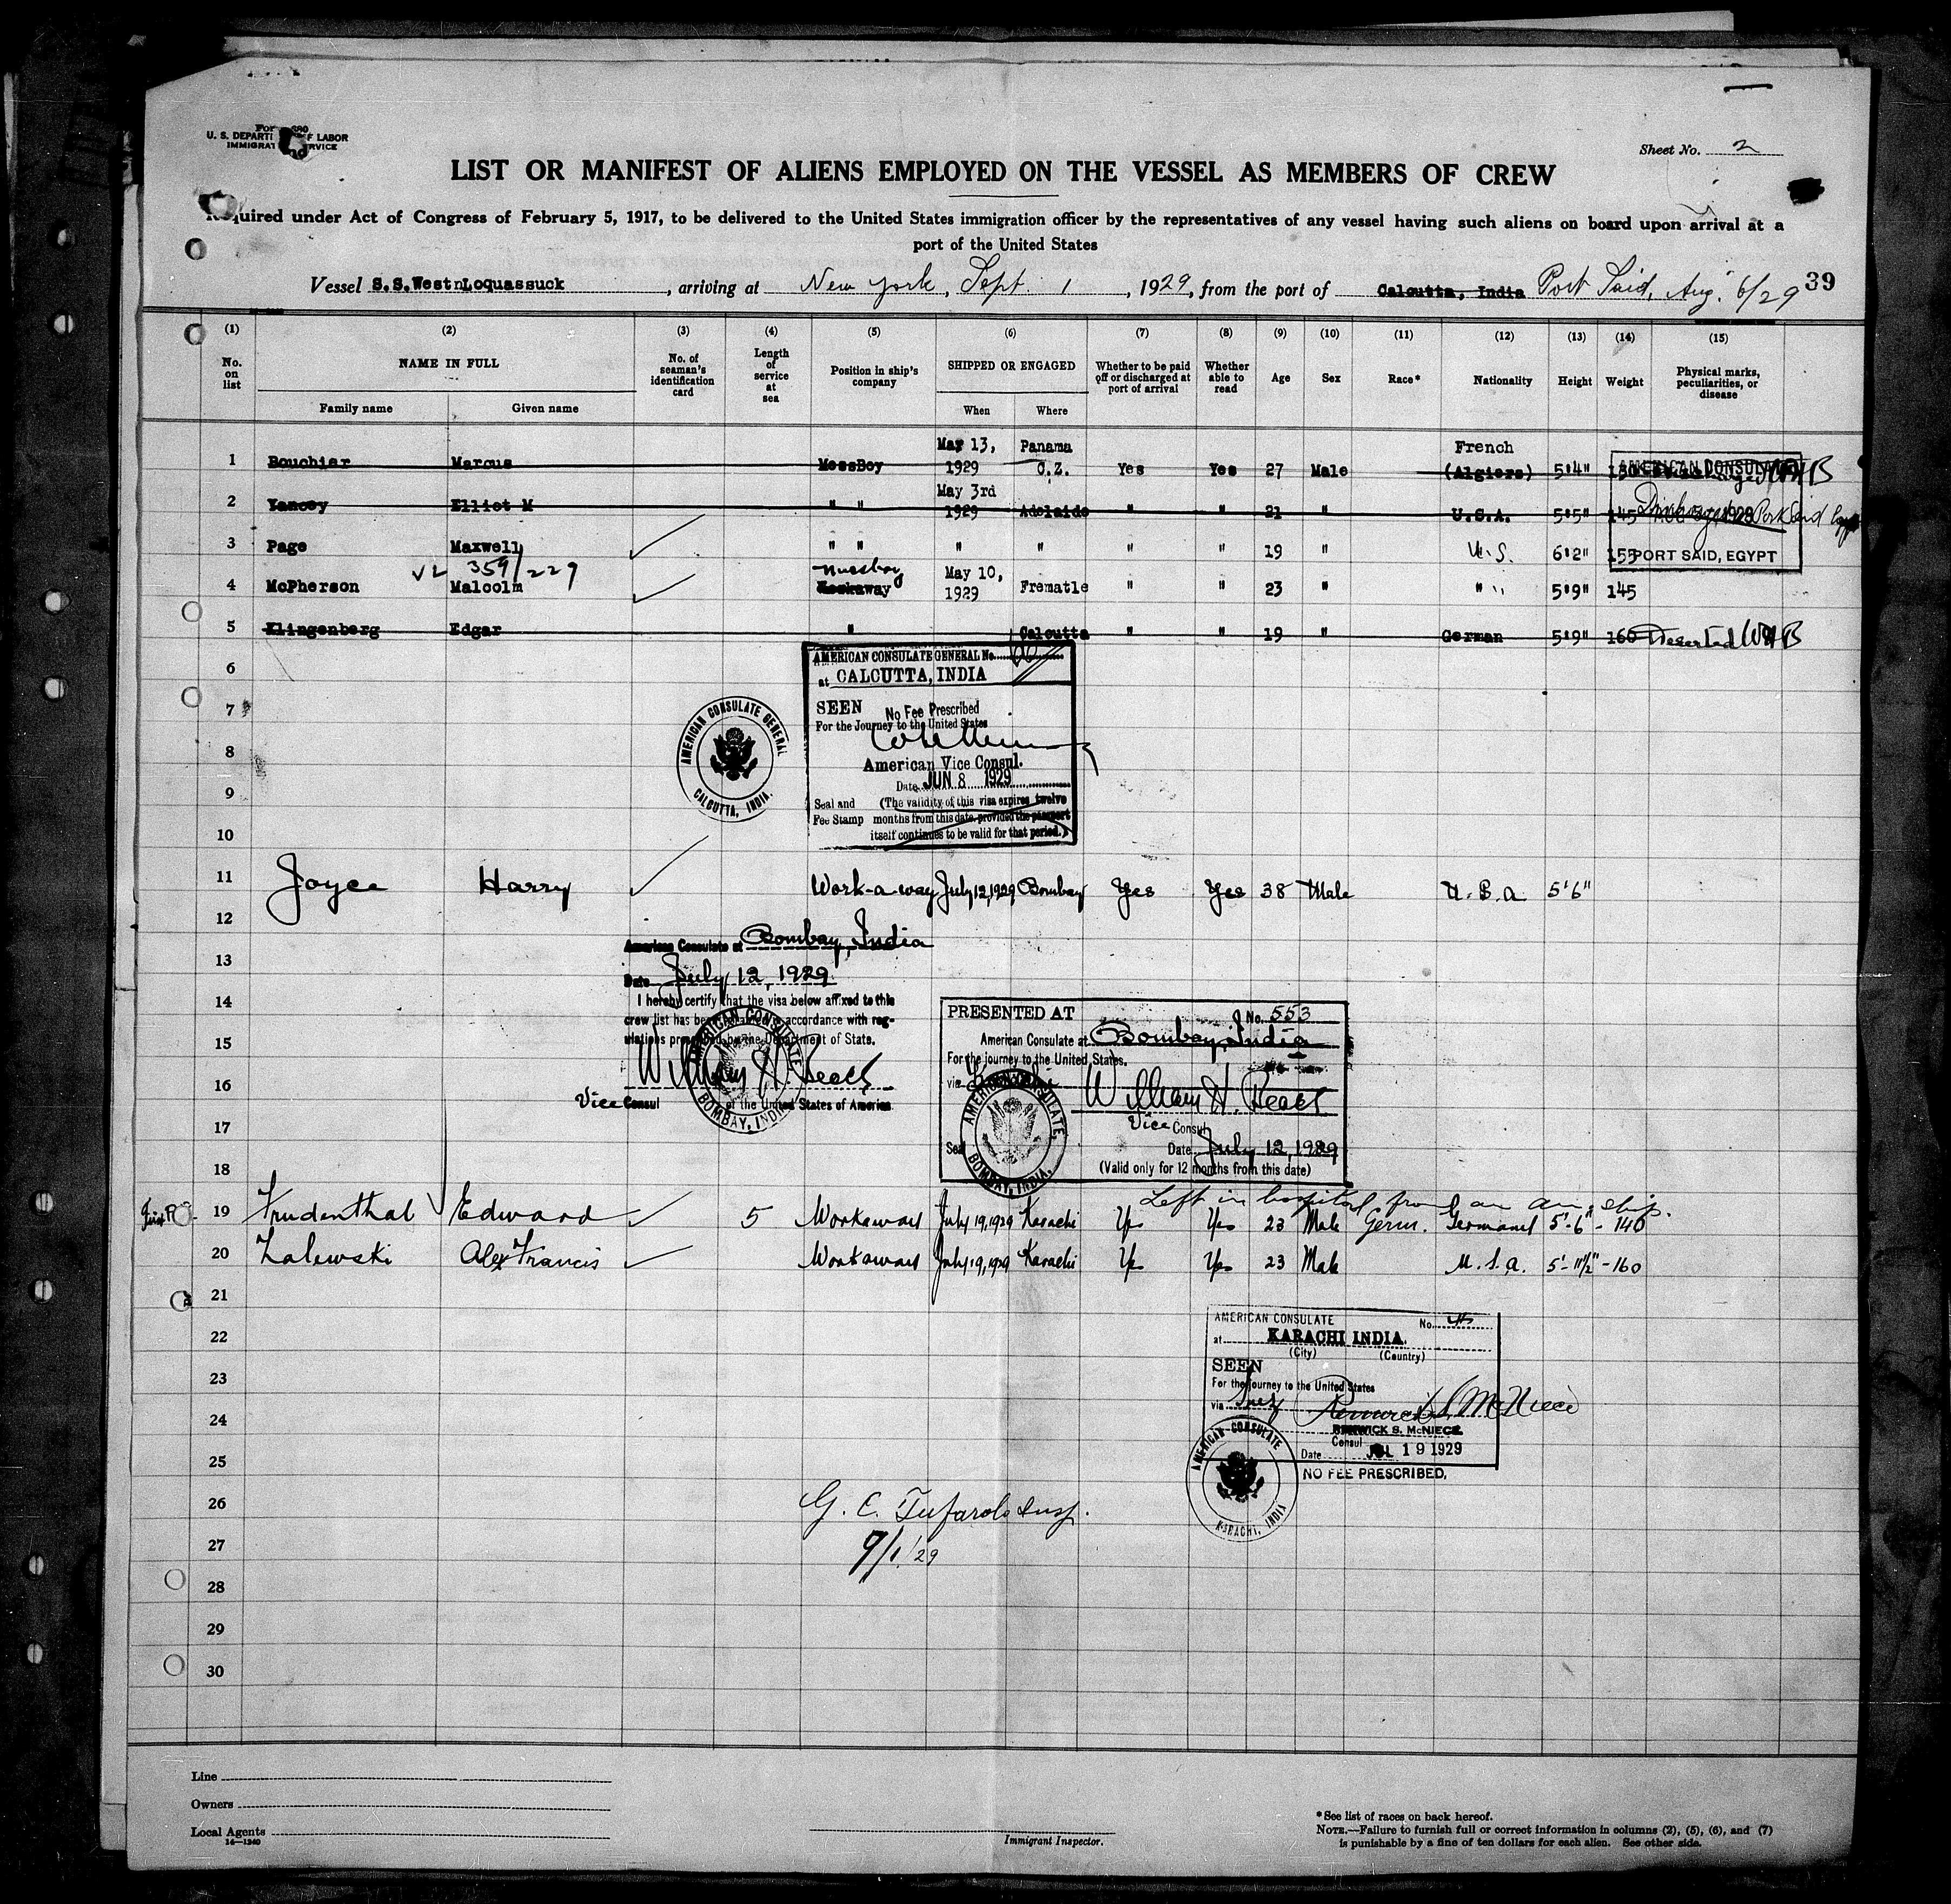 Sheet No. 2
U. S. DEPARTI F LABOR
IMMIGRAT RVICE
LIST OR MANIFEST OF ALIENS EMPLOYED ON THE VESSEL AS MEMBERS OF CREW
quired under Act of Congress of February 5, 1917, to be delivered to the United States immigration officer by the representatives of any vessel having such aliens on board upon arrival at a
port of the United States
Vessel S.S.WestnLoquassuck, arriving at New York, Sept. 1, 1929, from the port of Calcutta, India Port Said, Aug. 6/29 39
(1) (2) (3) (4) (5) (6) (7) (8) (9) (10) (11) (12) (13) (14) (15)
No. on list
NAME IN FULL
Family name Given name
No. of seaman's identification card
Length of service at sea
Position in ship's company
SHIPPED OR ENGAGED
When Where
Whether to be paid off or discharged at port of arrival
Whether able to read
Age
Sex
Race*
Nationality
Height
Weight
Physical marks, peculiarities, or disease
1 Bouchiar Marcus MessBoy May 13, 1929 Panama C.Z. Yes Yes 27 Male French (Algiers) 5'4" 150
2 Yancey Elliot M " " May 3rd 1929 Adelaide " " 21 " U.S.A. 5'5" 145
3 Page Maxwell " " " " " " 19 " U.S. 6'2" 155
AMERICAN CONSULATE
PORT SAID, EGYPT
359/229
4 McPherson Malcolm messboy Workaway May 10, 1929 Frematle " " 23 " " " 5'9" 145
5 Klingenberg Edgar " Calcutta " " 19 " German 5'9" 160 Deserted WHB
6
7
8
9
10
AMERICAN CONSULATE GENERAL No.
at CALCUTTA, INDIA
SEEN No Fee Prescribed
For the Journey to the United States
American Vice Consul.
Date JUN 8 1929
Seal and (The validity of this visa expires twelve
Fee Stamp months from this date, provided the passport
itself continues to be valid for that period.)
AMERICAN CONSULATE GENERAL
CALCUTTA, INDIA.
11 Joyce Harry Work-a-way July 12, 1929 Bombay Yes Yes 38 Male U.S.A 5'6"
12
13
14
15
16
17
18
American Consulate at Bombay, India
Date July 12, 1929
I hereby certify that the visa below affixed to this
crew list has been in accordance with reg-
ulations prescribed by the Department of State.
William H. Beach
Vice Consul of the United States of America
AMERICAN CONSULATE
BOMBAY, INDIA
PRESENTED AT No. 553
American Consulate at Bombay, India
For the journey to the United States.
via
William H. Beach
Vice Consul
Seal Date July 12, 1929
(Valid only for 12 months from this date)
AMERICAN CONSULATE,
BOMBAY, INDIA.
Left in hospital from an am. ship.
19 Frudenthal Edward 5 Workaway July 19, 1929 Karachi Yes Yes 23 Male Germ. Germany 5'-6" - 140
20 Zalewski Alex Francis Workaway July 19, 1929 Karachi Yes Yes 23 Male U.S.A. 5'-11½" - 160
21
22
23
24
25
26
27
28
29
30
AMERICAN CONSULATE No.
at KARACHI INDIA.
(City) (Country)
SEEN
For the journey to the United States
via Suez Renwick S. McNiece
RENWICK S. McNIECE
Consul
Date JUL 19 1929
NO FEE PRESCRIBED.
AMERICAN CONSULATE
KARACHI, INDIA
G. C. Tufarolo Insp.
9/1/29
Line
Owners
Local Agents
14—1240
Immigrant Inspector.
*See list of races on back hereof.
NOTE.—Failure to furnish full or correct information in columns (2), (5), (6), and (7)
is punishable by a fine of ten dollars for each alien. See other side.